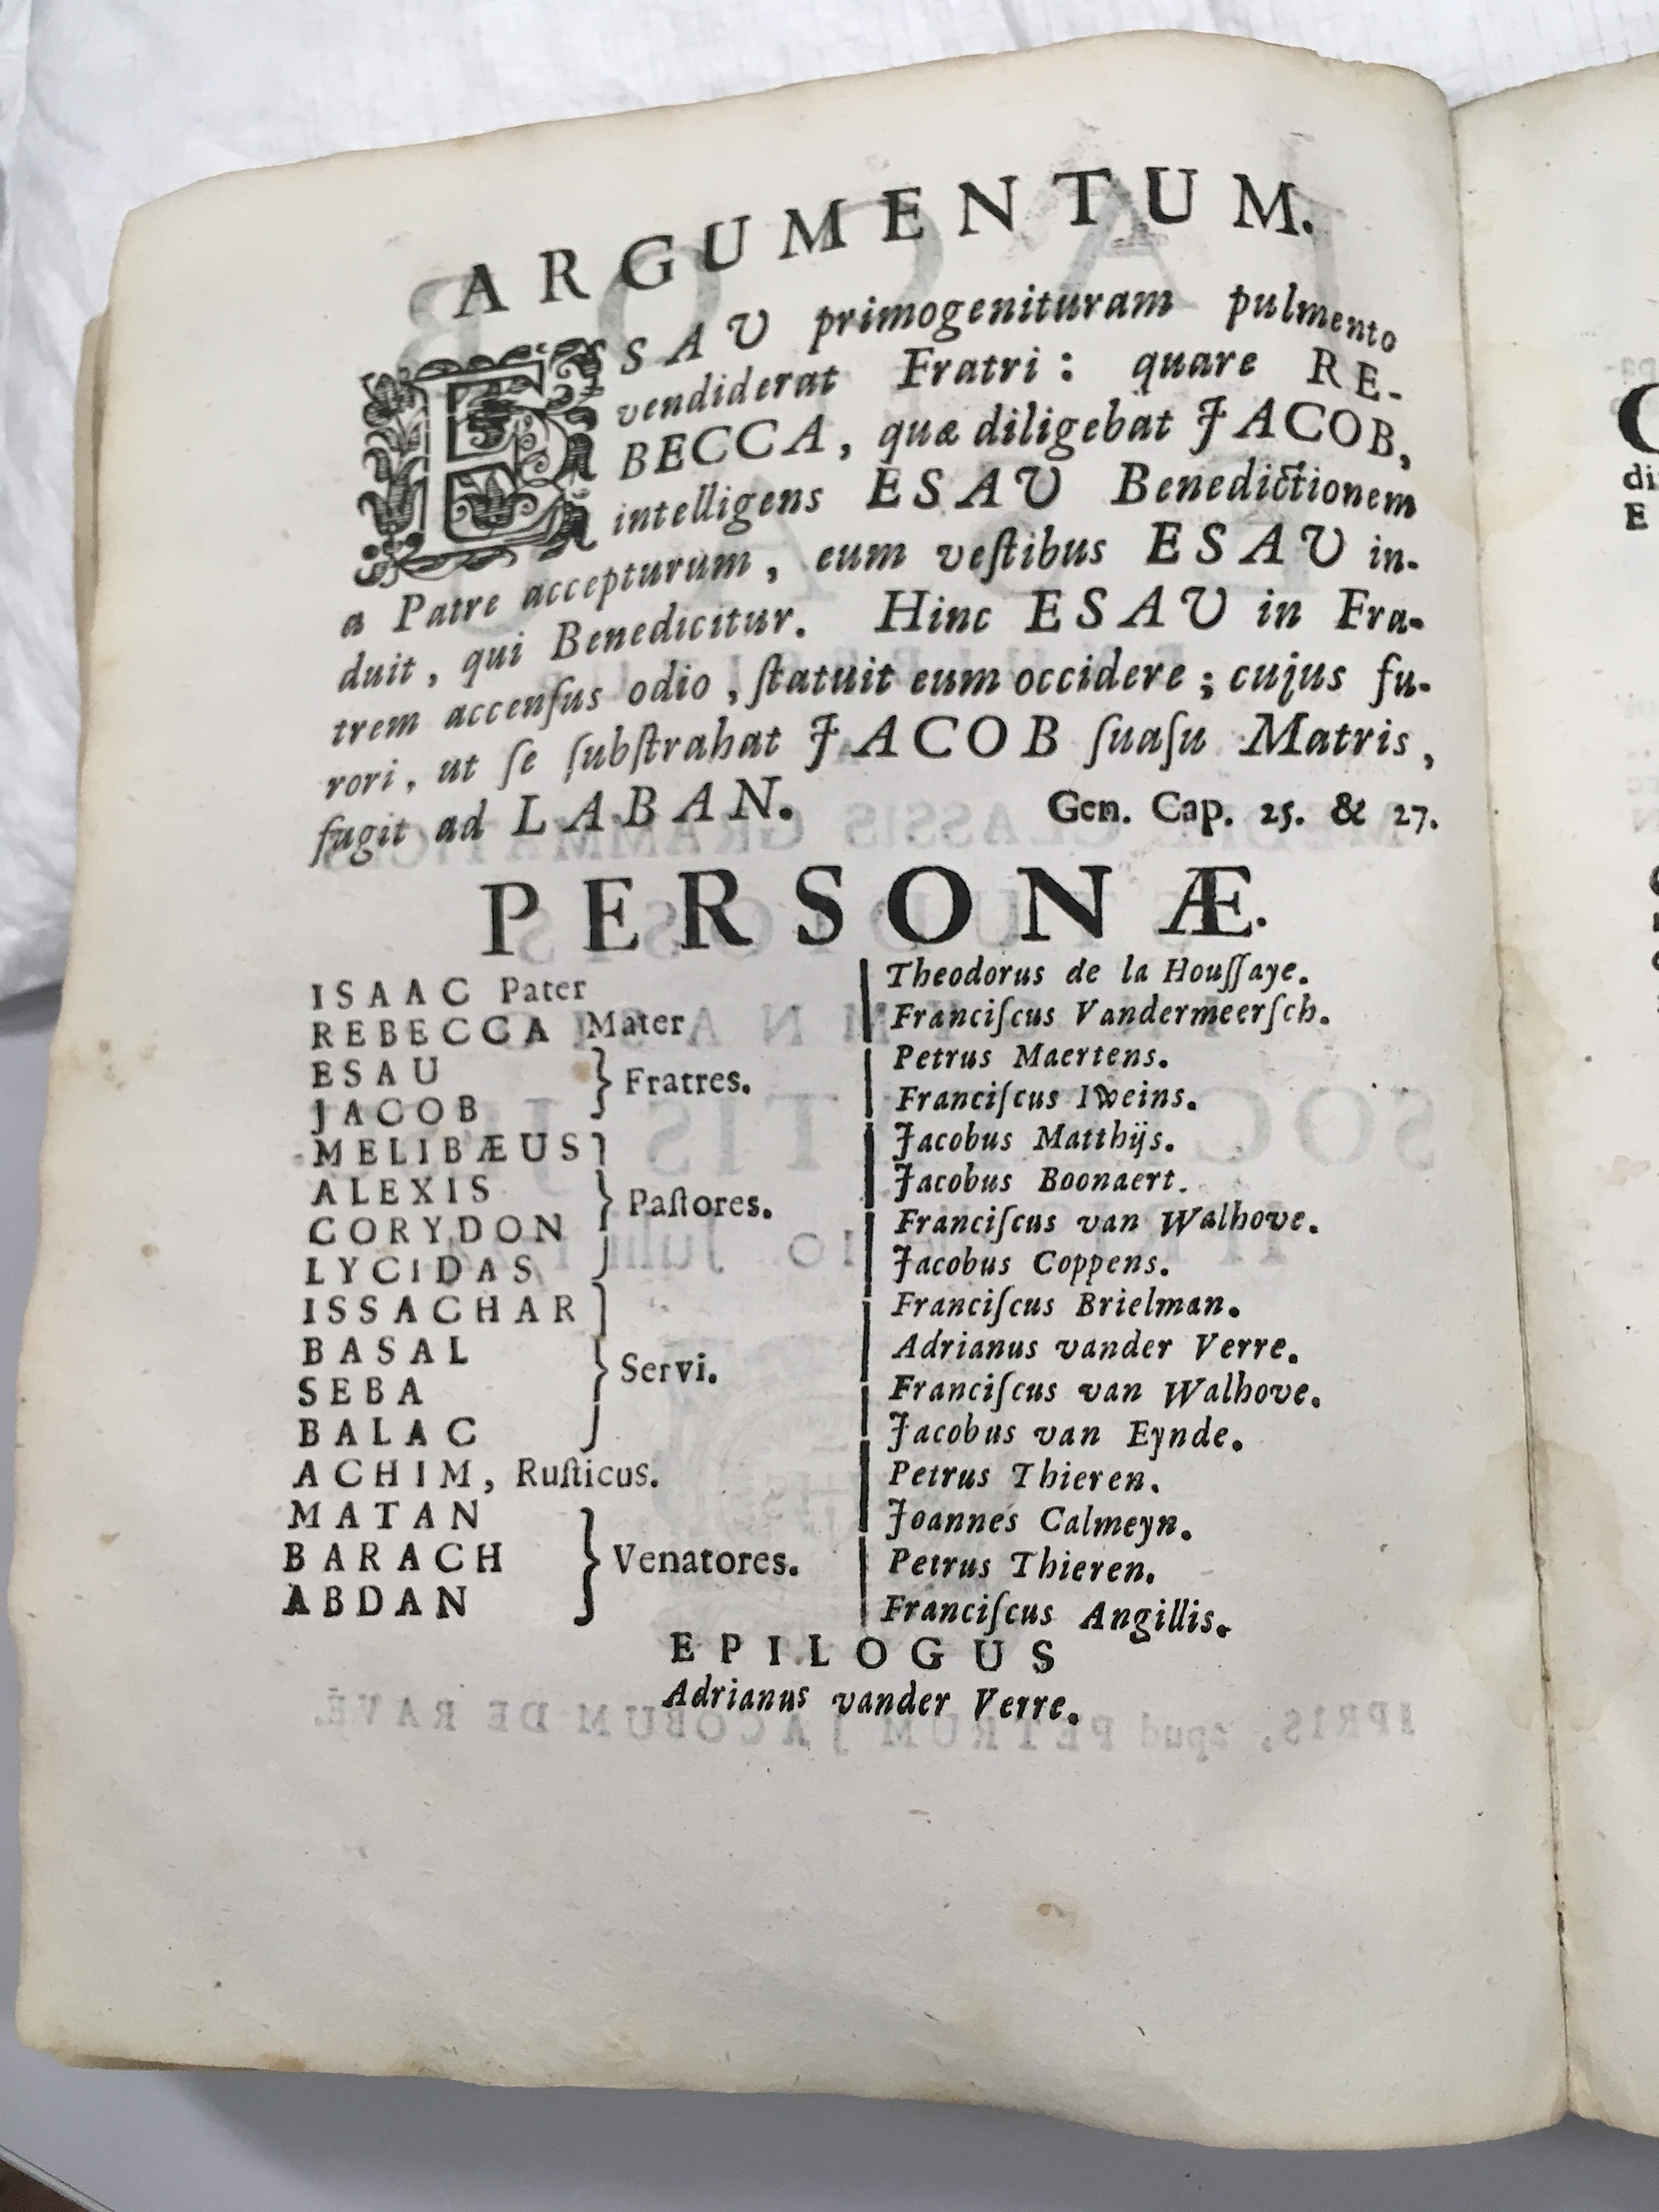 ARGUMENTUM.
ESAU primogenituram pulmento
vendiderat Fratri: quare RE-
BECCA, quæ diligebat JACOB,
intelligens ESAU Benedictionem
a Patre accepturum, eum veſtibus ESAU in-
duit, qui Benedicitur. Hinc ESAU in Fra-
trem accenſus odio, ſtatuit eum occidere; cujus fu-
rori, ut ſe ſubſtrahat JACOB ſuaſu Matris,
fugit ad LABAN. Gen. Cap. 25. & 27.
PERSONÆ.
ISAAC Pater Theodorus de la Houſſaye.
REBECCA Mater Franciſcus Vandermeerſch.
ESAU Petrus Maertens.
Fratres.
JACOB Franciſcus Iweins.
MELIBÆUS Jacobus Matthijs.
ALEXIS Jacobus Boonaert.
Paſtores.
CORYDON Franciſcus van Walhove.
LYCIDAS Jacobus Coppens.
ISSACHAR Franciſcus Brielman.
BASAL Adrianus vander Verre.
Servi.
SEBA Franciſcus van Walhove.
BALAC Jacobus van Eynde.
ACHIM, Ruſticus. Petrus Thieren.
MATAN Joannes Calmeyn.
BARACH Venatores. Petrus Thieren.
ABDAN Franciſcus Angillis.
EPILOGUS
Adrianus vander Verre.